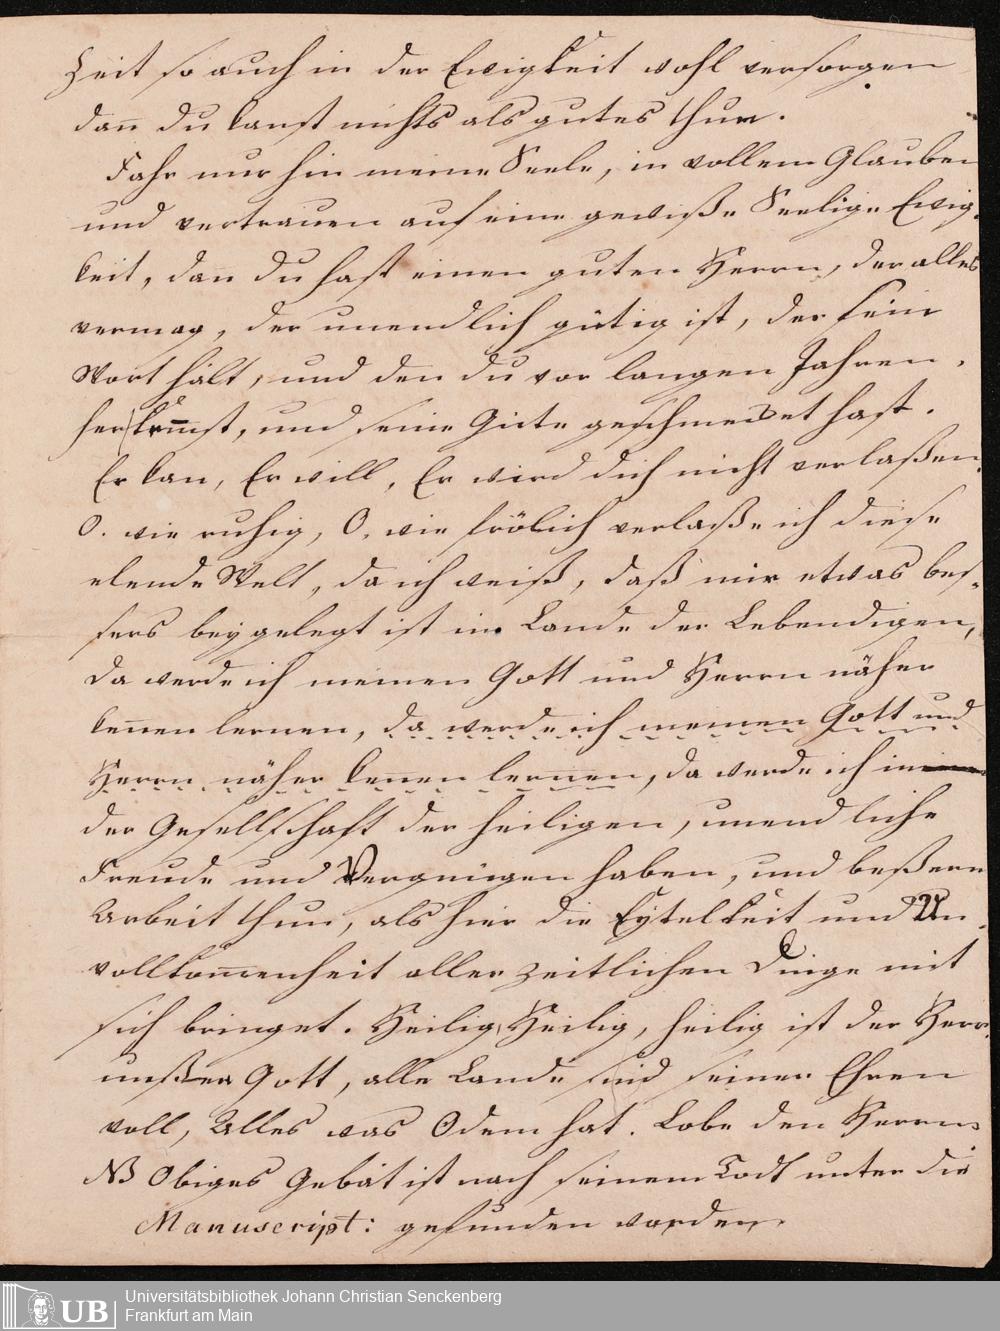 Zeit so auch in der Ewigkeit wohl versorgen
dan̄ du kanst nichts als gutes thun.
Fahr nur hin meine Seele, in vollem Glauben
und vertrauen auf eine gewiße Seelige Ewig-
keit, dan̄ du hast einen guten Herrn, der alles
vermag, der unendlich gütig ist, der sein
Wort hält, und den du vor langen Jahren,
her ken̄est, und seine Güte geschmecket hast.
Er kan, Er will, Er wird dich nicht verlaßen.
O. wie ruhig, O, wie frölich verlaße ich diese
elende Welt, da ich weiß, daß mir etwas bes-
sers beygelegt ist im Lande der Lebendigen,
da werde ich meinen Gott und Herrn näher
ken̄en lernen, da werde ich meinen Gott und
Herrn näher kenen lernen, da werde ich in
der Gesellschaft der heiligen, unendliche
Freude und Vergnügen haben, und beßere
Arbeit thun, als hier die Eytelkeit und Un-
vollkom̄enheit aller zeitlichen Dinge mit
sich bringet. Heilig, Heilig, heilig ist der Herr
unßer Gott, alle Lande sind seiner Ehren
voll, Alles was Odem hat. Lobe den Herrn
NB Obiges Gebät ist nach seinem Todt unter die
Manuscript: gefunden worden.
UB
Universitätsbibliothek Johann Christian Senckenberg
Frankfurt am Main